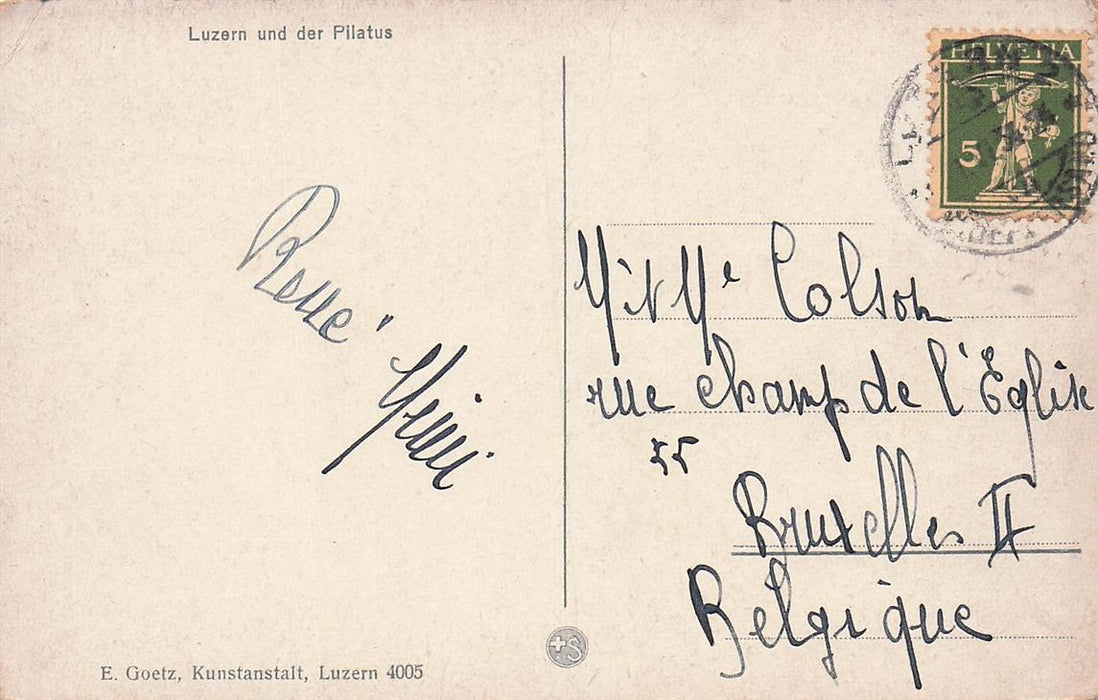 Luzern und der Pilatus
HELVETIA
5
René
Mimi
M et Me Colson
rue champ de l'Église
55
Bruxelles II
Belgique
+S
E. Goetz, Kunstanstalt, Luzern 4005